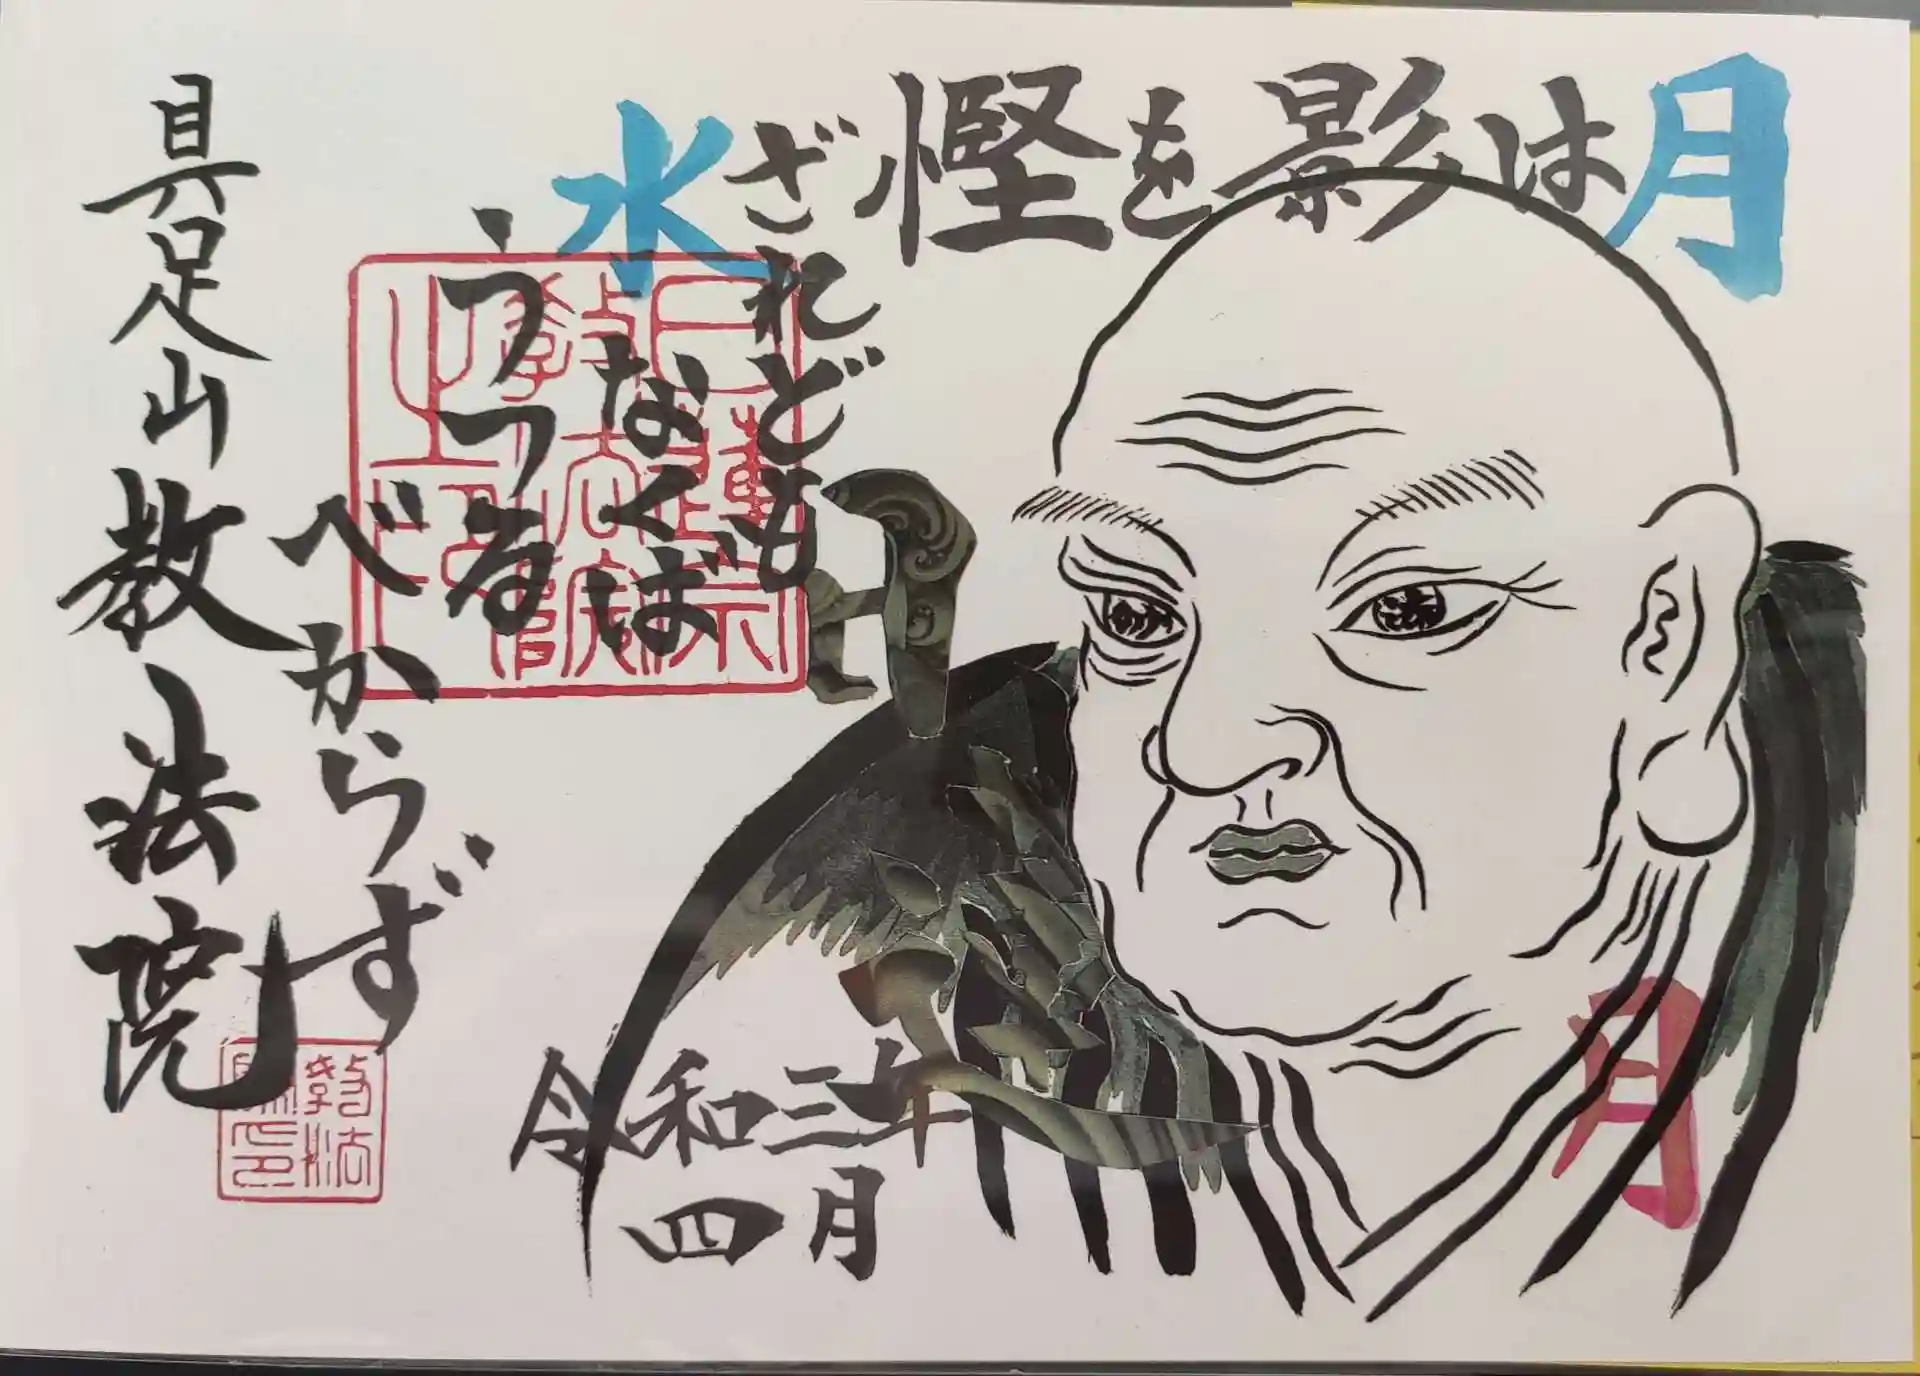 月は影を慳ざれども
水なくば
うつる
べからず
具足山 教法院
令和三年
四月
月